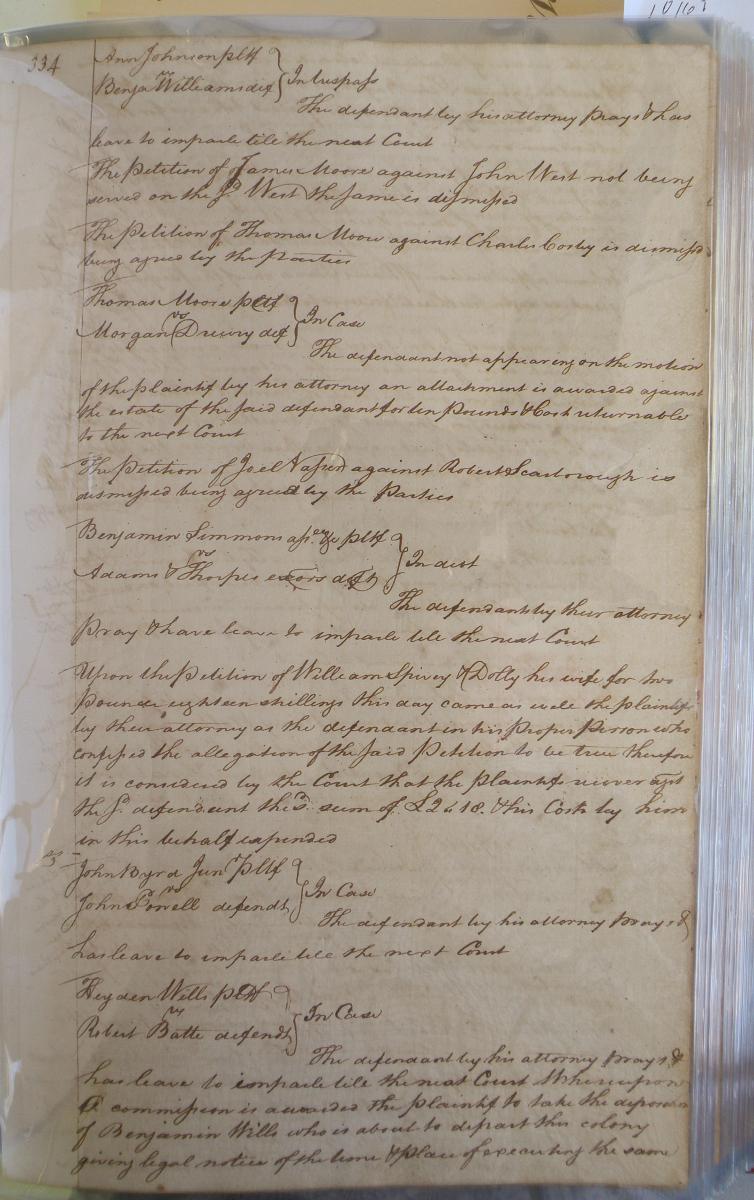 334
Ann Johnson pltf
vs
Benja Williams def } In trespass
The defendant by his attorney prays & has
leave to imparle till the next Court
The Petition of James Moore against John West not being
served on the sd West the same is dismissed
The Petition of Thomas Moore against Charles Cosby is dismissd
being agreed by the Parties
Thomas Moore pltf
vs
Morgan Drewry def } In Case
The defendant not appearing on the motion
of the plaintif by his attorney an attachment is awarded against
the estate of the said defendant for ten pounds & Costs returnable
to the next Court
The Petition of Joel against Robert Scarborough is
dismissed being agreed by the Parties
Benjamin Simmons asse &c pltf
vs
Adams & Thorpes exors defts } In debt
The defendants by their attorney
pray & have leave to imparle till the next Court
Upon the Petition of William Spivey & Dolly his wife for two
pounds eighteen shillings this day came as well the plaintifs
by their attorney as the defendant in his proper person who
confessed the allegation of the said Petition to be true therefore
it is considered by the Court that the plaintif recover agst
the sd defendant the sd sum of £2 18. & his Costs by him
in this behalf expended
John Byrd Junr pltf
vs
John Powell defendt } In Case
The defendant by his attorney prays &
has leave to imparle till the next Court
Heyden Wells pltf
vs
Robert Batte defendt } In Case
The defendant by his attorney prays &
has leave to imparle till the next Court Whereupon
a commission is awarded the plaintif to take the deposion
of Benjamin Wills who is about to depart this colony
giving legal notice of the time & place of executing the same